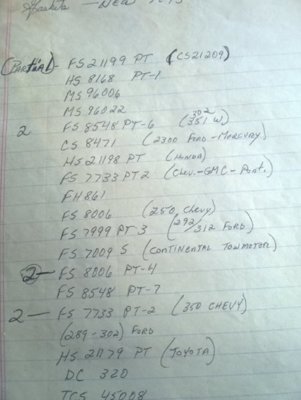 Gaskets — New
(Partial) - FS 21199 PT (CS21209)
HS 8168 PT-1
MS 96006
MS 96022
2 FS 8548 PT-6 (302 351 W)
CS 8471 (2300 Ford - Mercury)
HS 21198 PT (Honda)
FS 7733 PT 2 (Chev.-GMC-Pont.)
FH 861
FS 8006 (250 Chevy)
FS 7999 PT 3 (292/312 Ford)
FS 7009 S (Continental Towmotor)
2 — FS 8006 PT-4
FS 8548 PT-7
2 — FS 7733 PT-2 (350 CHEVY)
(289-302) Ford
HS 21179 PT (Toyota)
DC 320
TCS 45008